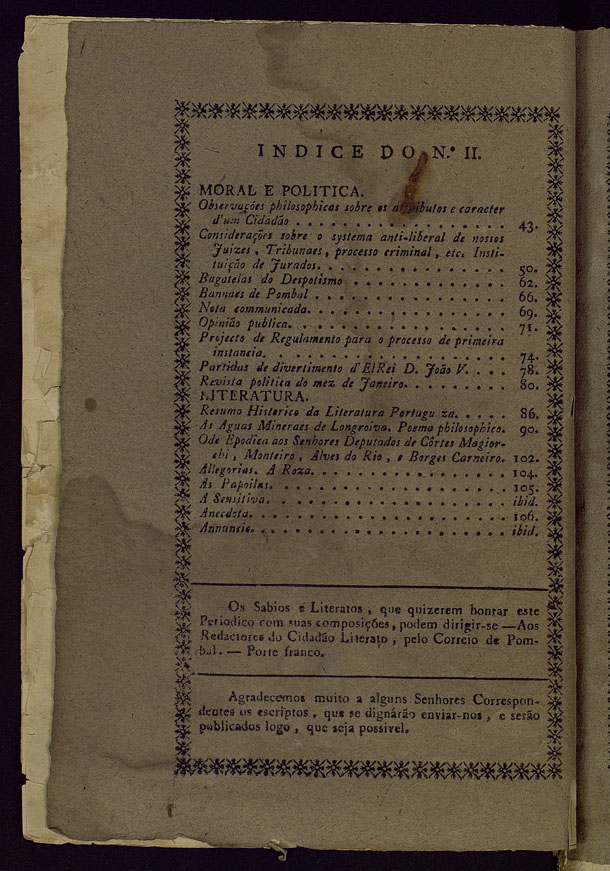 INDICE DO N.º II.
MORAL E POLITICA.
Observações philosophicas sobre os attributos e caracter
d'um Cidadão . . . . . . . . . . . . . . . . . 43.
Considerações sobre o systema anti-liberal de nossos
Juizes, Tribunaes, processo criminal, etc. Insti-
tuição de Jurados. . . . . . . . . . . . . . . 50.
Bagatelas do Despotismo . . . . . . . . . . . . 62.
Bannaes de Pombal . . . . . . . . . . . . . . 66.
Nota communicada. . . . . . . . . . . . . . . 69.
Opinião publica. . . . . . . . . . . . . . . . 71.
Projecto de Regulamento para o processo de primeira
instancia. . . . . . . . . . . . . . . . . . . 74.
Partidas de divertimento d'ElRei D. João V. . . . 78.
Revista politica do mez de Janeiro. . . . . . . . 80.
LITERATURA.
Resumo Historico da Literatura Portugu za. . . . . 86.
As Aguas Mineraes de Longroiva. Poema philosophico. 90.
Ode Epodica aos Senhores Deputados de Côrtes Magior-
chi, Monteiro, Alves do Rio, e Borges Carneiro. 102.
Allegorias. A Roza. . . . . . . . . . . . . . . 104.
As Papoilas. . . . . . . . . . . . . . . . . . 105.
A Sensitiva. . . . . . . . . . . . . . . . . . ibid.
Anecdota. . . . . . . . . . . . . . . . . . . 106.
Annuncio. . . . . . . . . . . . . . . . . . . ibid.
Os Sabios e Literatos, que quizerem honrar este
Periodico com suas composições, podem dirigir-se —Aos
Redactores do Cidadão Literato, pelo Correio de Pom-
bal. — Porte franco.
Agradecemos muito a alguns Senhores Correspon-
dentes os escriptos, que se dignárão enviar-nos, e serão
publicados logo, que seja possivel.